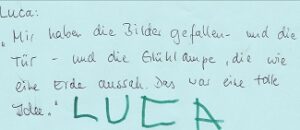 Luca:
"Mir haben die Bilder gefallen - und die
Tür - und die Glühlampe, die wie
eine Erde aussah. Das war eine tolle
Idee." LUCA